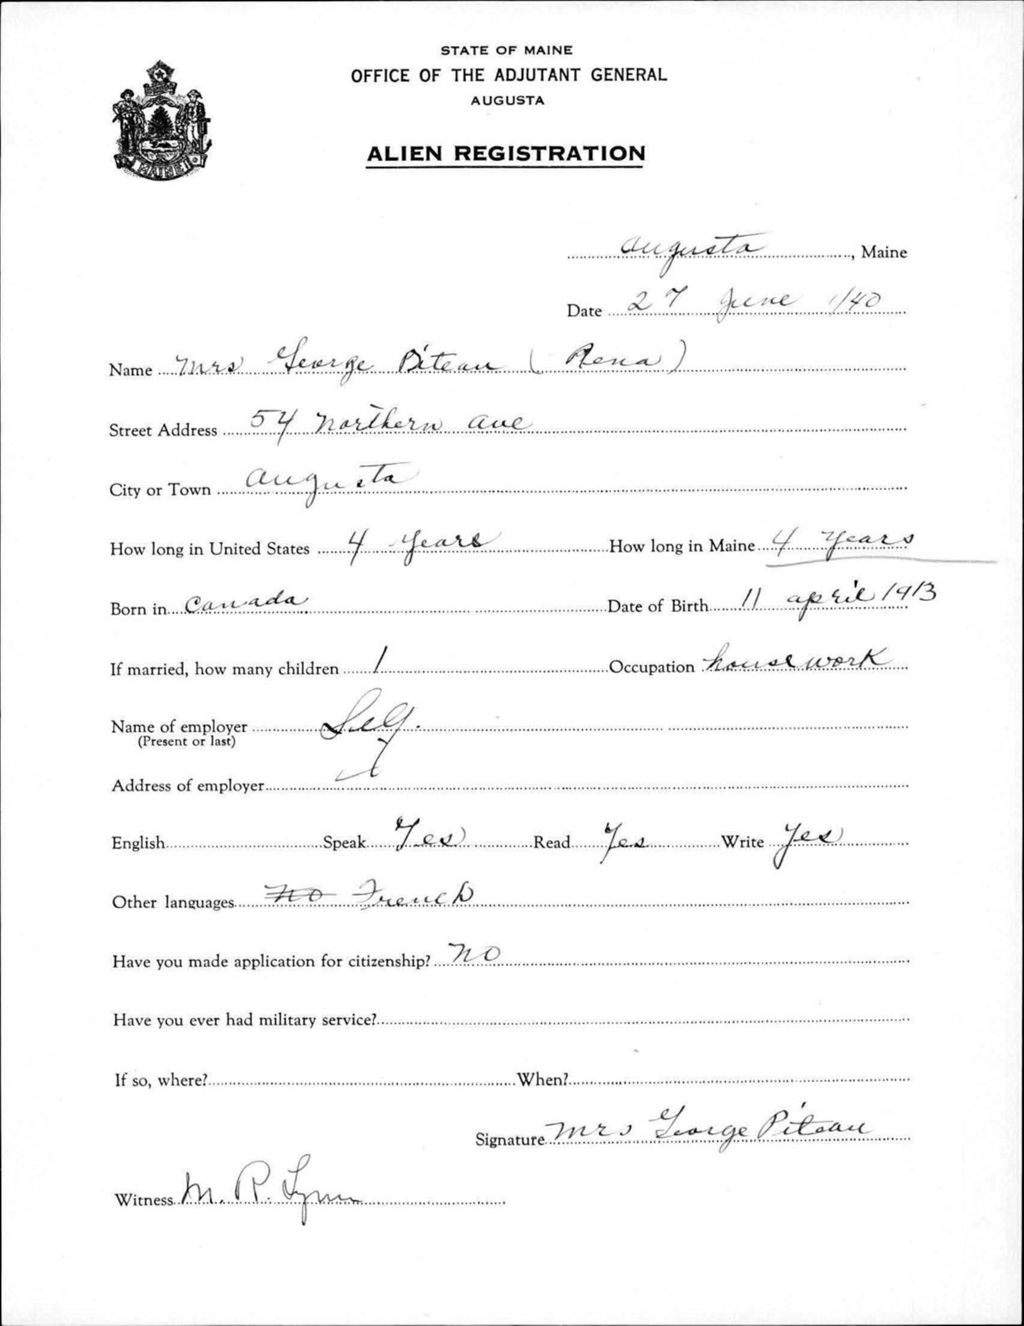 STATE OF MAINE
OFFICE OF THE ADJUTANT GENERAL
AUGUSTA
ALIEN REGISTRATION
MAINE
Augusta, Maine
Date 27 June 1940
Name Mrs George Piteau (Rena)
Street Address 54 Northern Ave
City or Town Augusta
How long in United States 4 years How long in Maine 4 Years
Born in Canada Date of Birth 11 april 1913
If married, how many children 1 Occupation housework
Name of employer Self.
(Present or last)
Address of employer
English Speak Yes Read Yes Write Yes
Other languages No French
Have you made application for citizenship? No
Have you ever had military service?
If so, where? When?
Signature Mrs George Piteau
Witness M. R. Lynn